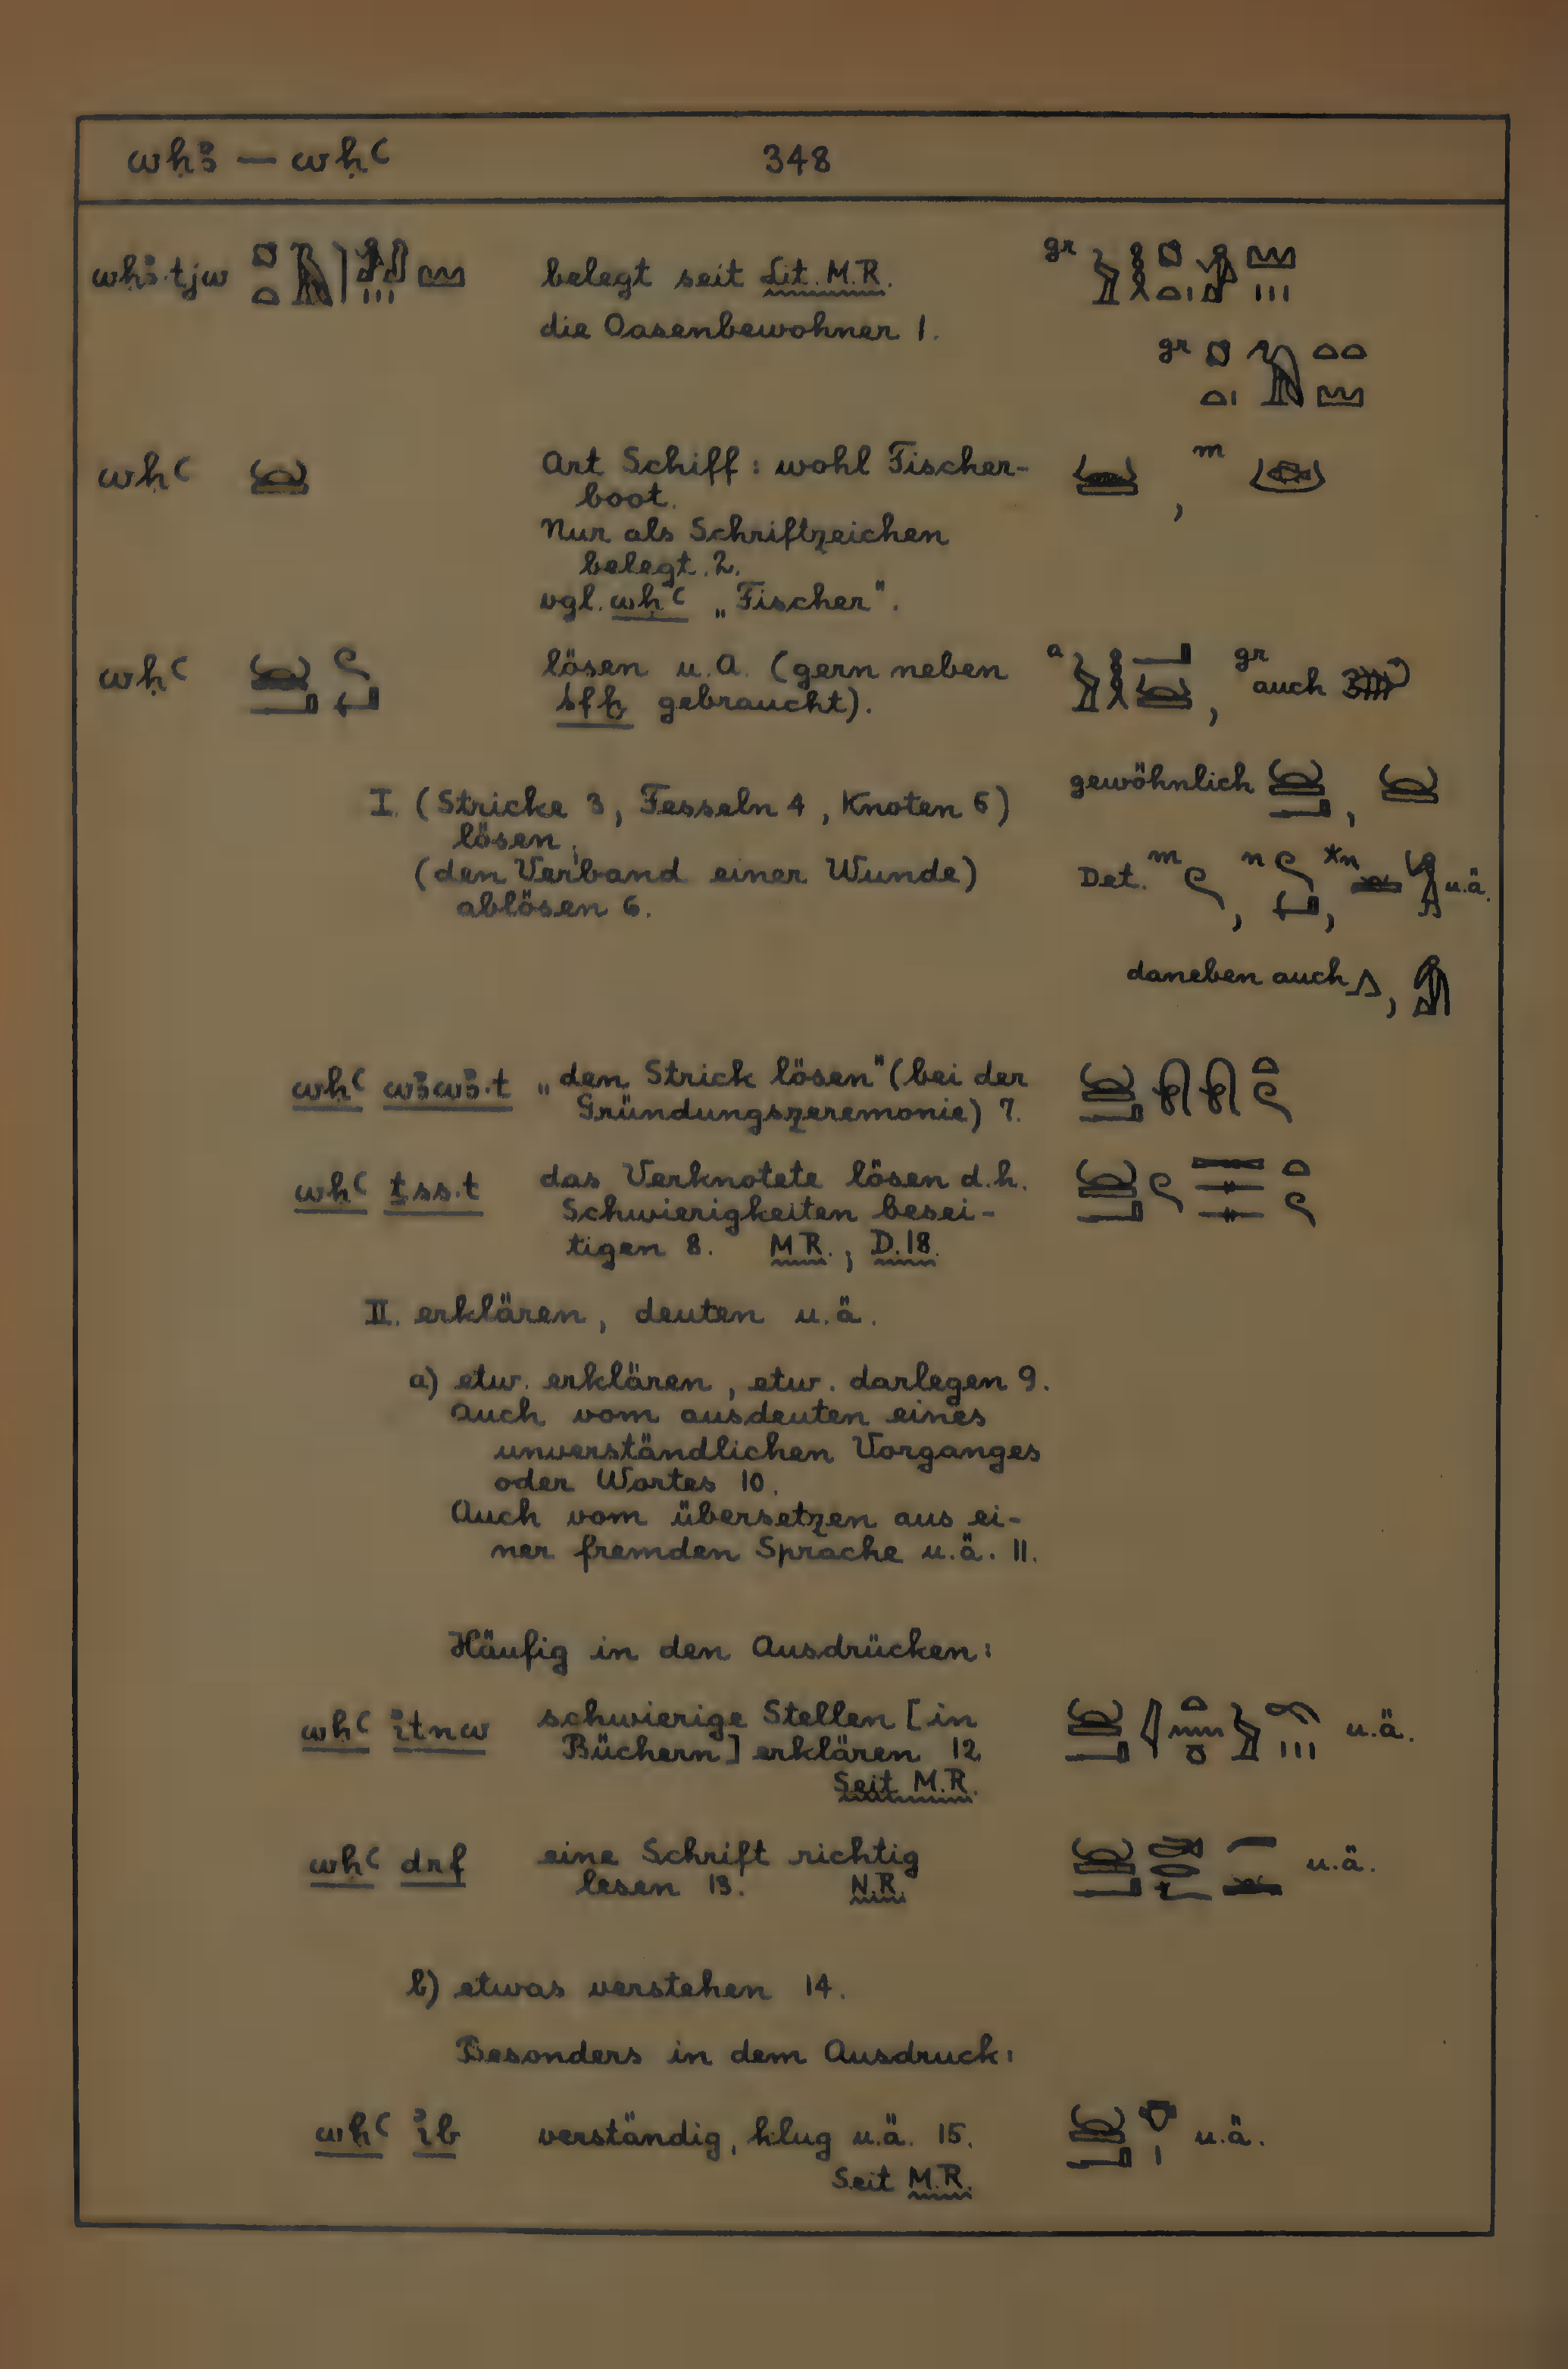 wḥꜣ — wḥꜥ 348
wḥꜣ·tjw belegt seit Lit. M.R. gr
die Oasenbewohner 1.
gr
wḥꜥ Art Schiff: wohl Fischer- , m
boot.
Nur als Schriftzeichen
belegt. 2.
vgl. wḥꜥ „Fischer".
wḥꜥ lösen u.A. (gern neben a , gr auch
sfḫ gebraucht).
gewöhnlich ,
I. (Stricke 3, Fesseln 4, Knoten 5)
lösen,
(den Verband einer Wunde) Det. m , n , *n u.ä.
ablösen 6.
daneben auch ,
wḥꜥ wꜣwꜣ·t „den Strick lösen" (bei der
Gründungszeremonie) 7.
wḥꜥ ṯss·t das Verknotete lösen d.h.
Schwierigkeiten besei-
tigen 8. M.R., D.18.
II. erklären, deuten u.ä.
a) etw. erklären, etw. darlegen 9.
Auch vom ausdeuten eines
unverständlichen Vorganges
oder Wortes 10.
Auch vom übersetzen aus ei-
ner fremden Sprache u.ä. 11.
Häufig in den Ausdrücken:
wḥꜥ ı͗tnw schwierige Stellen [in u.ä.
Büchern] erklären 12.
Seit M.R.
wḥꜥ drf eine Schrift richtig u.ä.
lesen 13. N.R.
b) etwas verstehen 14.
Besonders in dem Ausdruck:
wḥꜥ ı͗b verständig, klug u.ä. 15. u.ä.
Seit M.R.